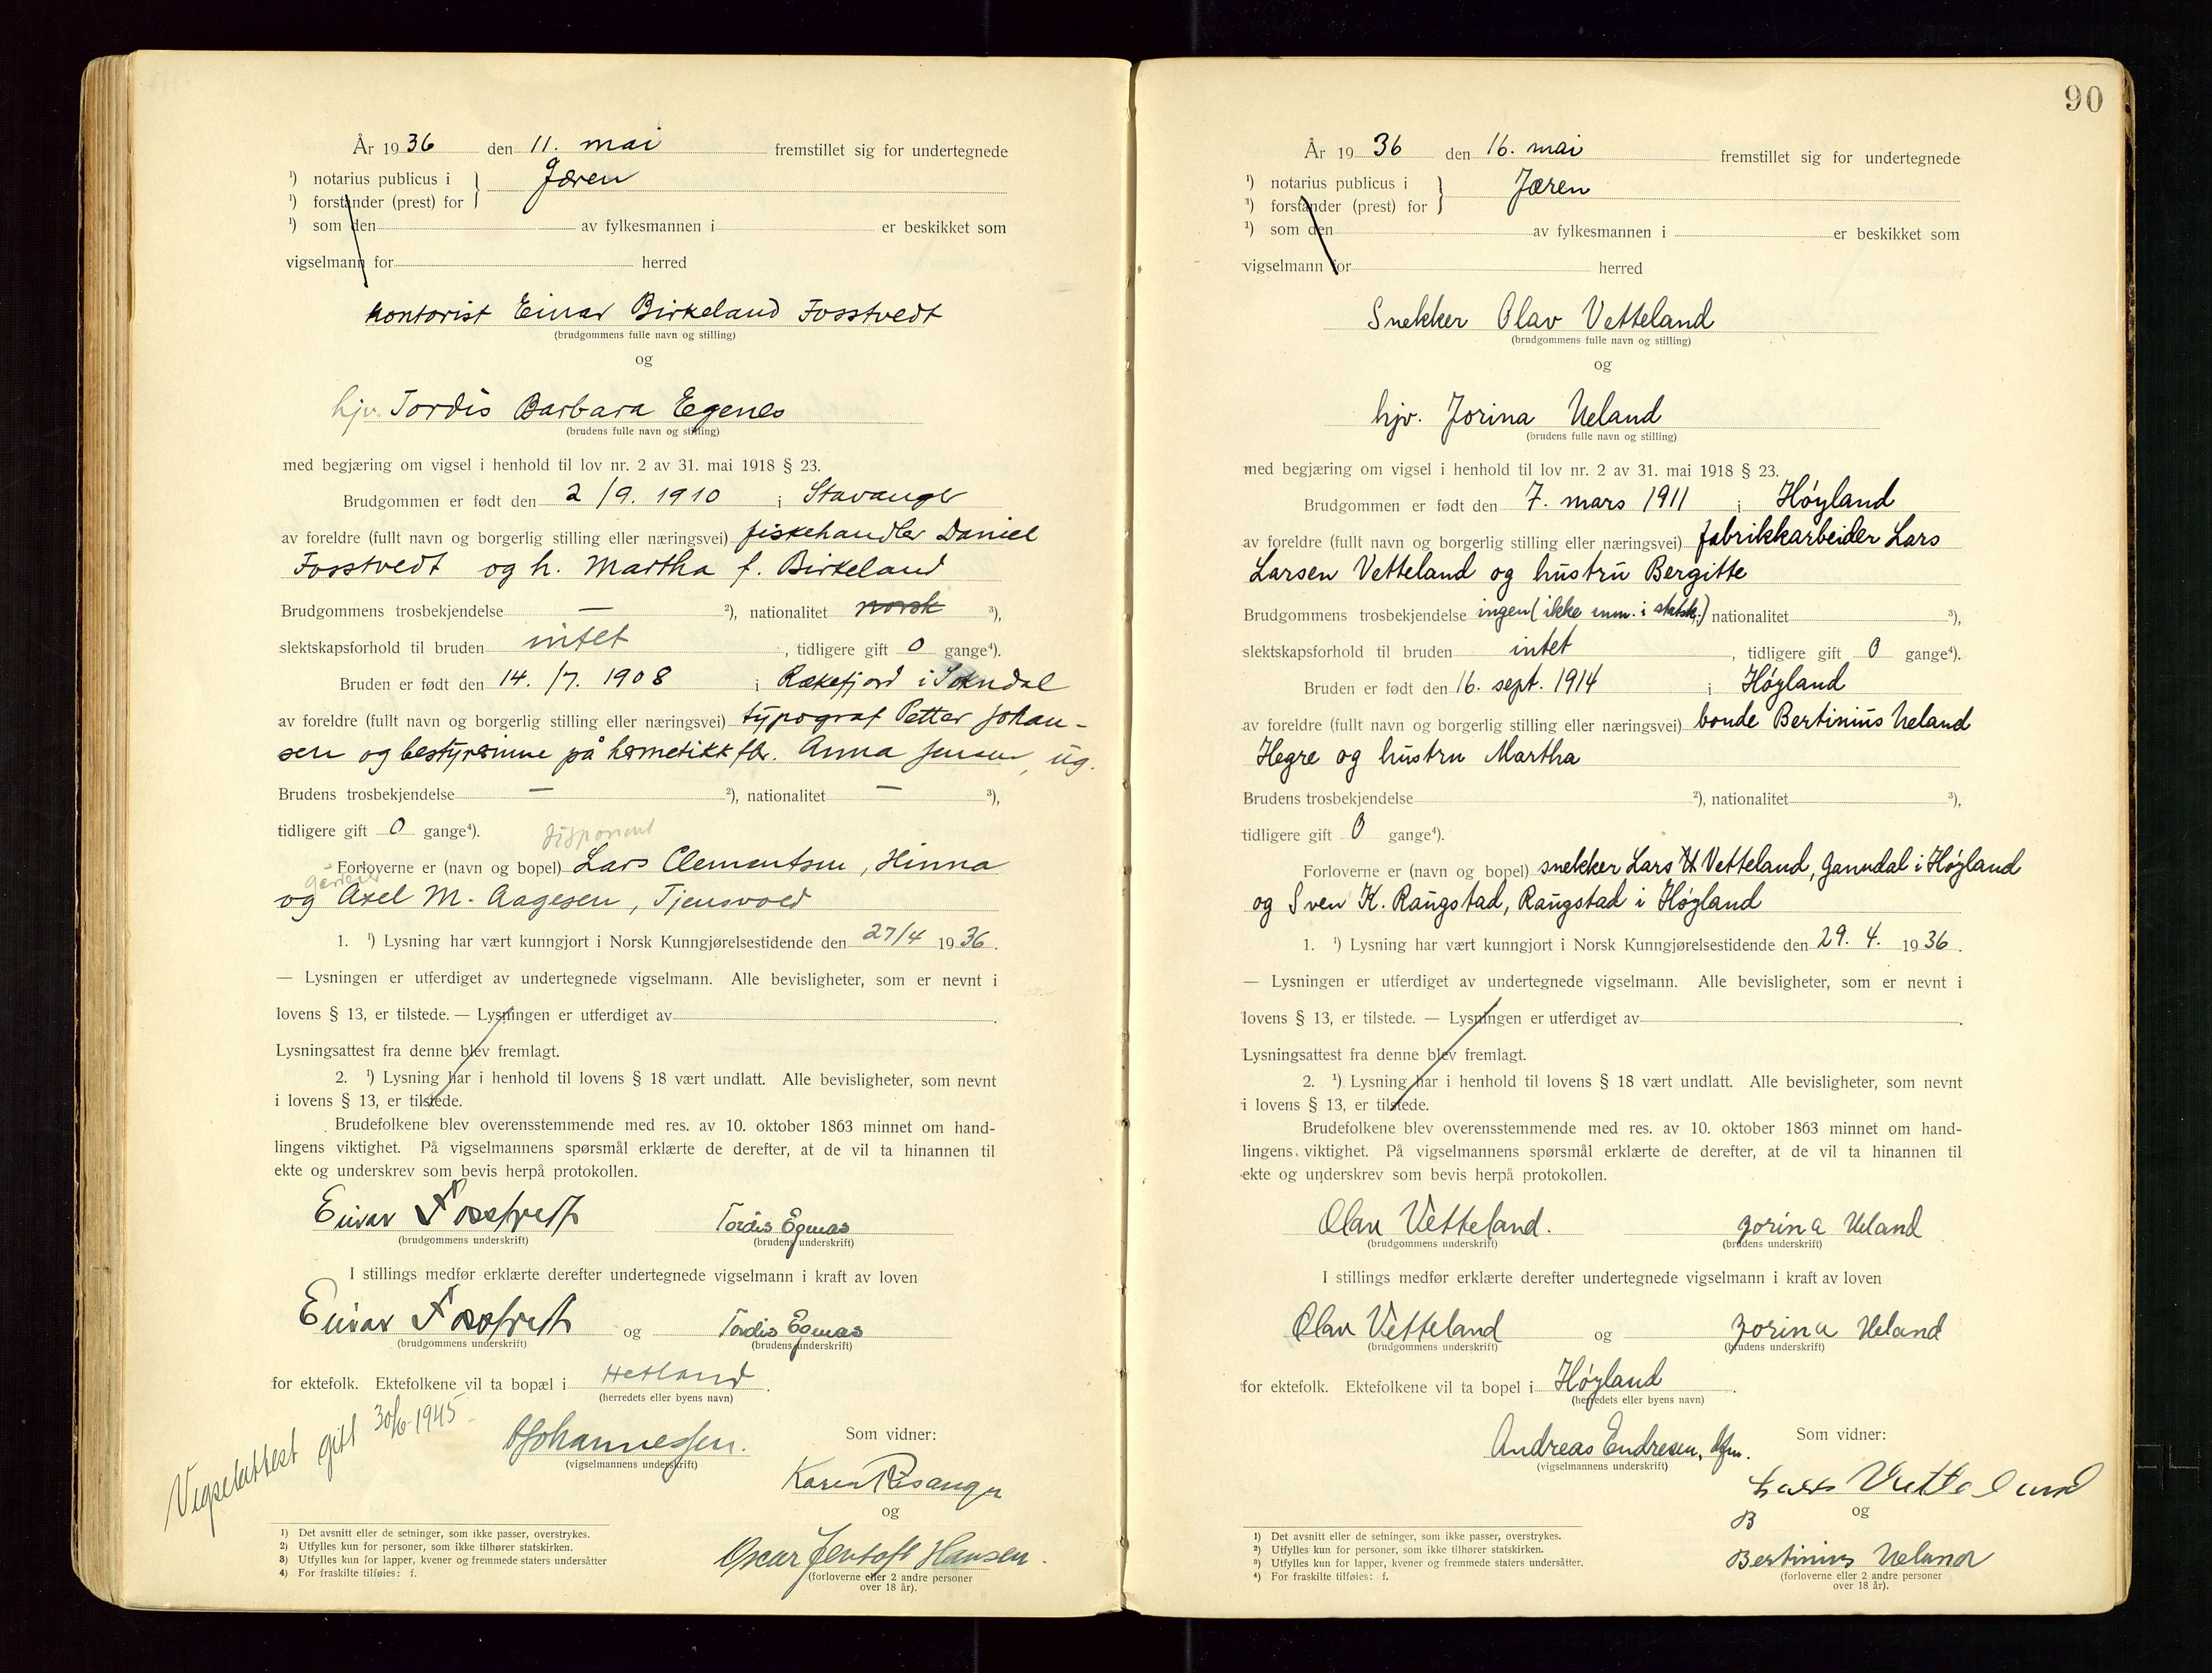 År 1936 den 11. mai fremstillet sig for undertegnede
¹) notarius publicus i } Jæren
¹) forstander (prest) for
¹) som den av fylkesmannen i er beskikket som
vigselmann for herred
kontorist Einar Birkeland Fosstvedt
(brudgommens fulle navn og stilling)
og
hjv. Tordis Barbara Egenes
(brudens fulle navn og stilling)
med begjæring om vigsel i henhold til lov nr. 2 av 31. mai 1918 § 23.
Brudgommen er født den 2/9. 1910 i Stavanger
av foreldre (fullt navn og borgerlig stilling eller næringsvei) fiskehandler Daniel
Fosstvedt og h. Martha f. Birkeland
Brudgommens trosbekjendelse — ²), nationalitet norsk ³),
slektskapsforhold til bruden intet, tidligere gift 0 gange⁴).
Bruden er født den 14./7. 1908 i Rækefjord i Sokndal
av foreldre (fullt navn og borgerlig stilling eller næringsvei) typograf Petter Johan-
sen og bestyrerinne på hermetikkfbr. Anna Jensen, ug.
Brudens trosbekjendelse — ²), nationalitet — ³),
tidligere gift 0 gange⁴). disponent
Forloverne er (navn og bopel) Lars Clementsen, Hinna
gartner
og Axel M. Aagesen, Tjensvold
1. ¹) Lysning har vært kunngjort i Norsk Kunngjørelsestidende den 27/4 1936.
— Lysningen er utferdiget av undertegnede vigselmann. Alle bevisligheter, som er nevnt i
lovens § 13, er tilstede. — Lysningen er utferdiget av .
Lysningsattest fra denne blev fremlagt.
2. ¹) Lysning har i henhold til lovens § 18 vært undlatt. Alle bevisligheter, som nevnt
i lovens § 13, er tilstede.
Brudefolkene blev overensstemmende med res. av 10. oktober 1863 minnet om hand-
lingens viktighet. På vigselmannens spørsmål erklærte de derefter, at de vil ta hinannen til
ekte og underskrev som bevis herpå protokollen.
Einar Fosstvedt Tordis Egenes
(brudgommens underskrift) (brudens underskrift)
I stillings medfør erklærte derefter undertegnede vigselmann i kraft av loven
Einar Fosstvedt og Tordis Egenes
(brudgommens underskrift) (brudens underskrift)
for ektefolk. Ektefolkene vil ta bopæl i Hetland.
(herredets eller byens navn)
Vigselattest gitt 30/6-1945
Johannessen.
(vigselmannens underskrift)
Som vidner:
Karen Risanger
og
Oscar Jentoft Hansen.
(forloverne eller 2 andre personer
over 18 år).
1) Det avsnitt eller de setninger, som ikke passer, overstrykes.
2) Utfylles kun for personer, som ikke tilhører statskirken.
3) Utfylles kun for lapper, kvener og fremmede staters undersåtter
4) For fraskilte tilføies: f.
90
År 1936 den 16. mai fremstillet sig for undertegnede
¹) notarius publicus i } Jæren
¹) forstander (prest) for
¹) som den av fylkesmannen i er beskikket som
vigselmann for herred
Snekker Olav Vetteland
(brudgommens fulle navn og stilling)
og
hjv. Jorina Ueland
(brudens fulle navn og stilling)
med begjæring om vigsel i henhold til lov nr. 2 av 31. mai 1918 § 23.
Brudgommen er født den 7. mars 1911 i Høyland
av foreldre (fullt navn og borgerlig stilling eller næringsvei) fabrikkarbeider Lars
Larsen Vetteland og hustru Bergitte
Brudgommens trosbekjendelse ingen (ikke inm. i statsk.) nationalitet ³),
slektskapsforhold til bruden intet, tidligere gift 0 gange⁴).
Bruden er født den 16. sept. 1914 i Høyland
av foreldre (fullt navn og borgerlig stilling eller næringsvei) bonde Bertinius Ueland
Hegre og hustru Martha
Brudens trosbekjendelse ²), nationalitet ³),
tidligere gift 0 gange⁴).
Forloverne er (navn og bopel) snekker Lars Vetteland, Ganndal i Høyland
og Sven K. Raugstad, Raugstad i Høyland
1. ¹) Lysning har vært kunngjort i Norsk Kunngjørelsestidende den 29. 4. 1936.
— Lysningen er utferdiget av undertegnede vigselmann. Alle bevisligheter, som er nevnt i
lovens § 13, er tilstede. — Lysningen er utferdiget av .
Lysningsattest fra denne blev fremlagt.
2. ¹) Lysning har i henhold til lovens § 18 vært undlatt. Alle bevisligheter, som nevnt
i lovens § 13, er tilstede.
Brudefolkene blev overensstemmende med res. av 10. oktober 1863 minnet om hand-
lingens viktighet. På vigselmannens spørsmål erklærte de derefter, at de vil ta hinannen til
ekte og underskrev som bevis herpå protokollen.
Olav Vetteland. Jorina Ueland
(brudgommens underskrift) (brudens underskrift)
I stillings medfør erklærte derefter undertegnede vigselmann i kraft av loven
Olav Vetteland og Jorina Ueland
(brudgommens underskrift) (brudens underskrift)
for ektefolk. Ektefolkene vil ta bopel i Høyland.
(herredets eller byens navn)
Andreas Endresen,
(vigselmannens underskrift)
Som vidner:
Lars Vetteland
B og
Bertinius Ueland
(forloverne eller 2 andre personer
over 18 år).
1) Det avsnitt eller de setninger, som ikke passer, overstrykes.
2) Utfylles kun for personer, som ikke tilhører statskirken.
3) Utfylles kun for lapper, kvener og fremmede staters undersåtter.
4) For fraskilte tilføies: f.